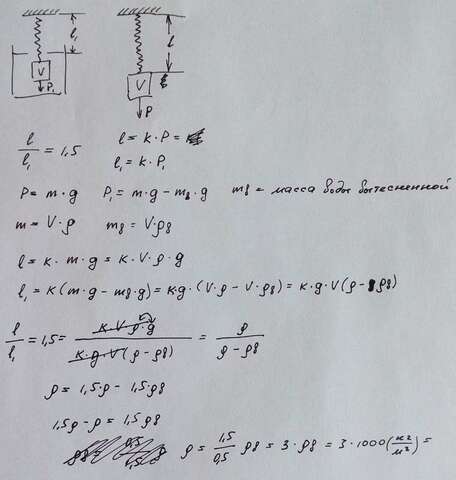 l₁ l
V V
P₁ P
l/l₁ = 1,5 l = k · P =
l₁ = k · P₁
P = m · g P₁ = m · g - mв · g mв = масса воды вытесненной
m = V · ρ mв = V · ρв
l = k · m · g = k · V · ρ · g
l₁ = k (m · g - mв · g) = k · g · (V · ρ - V · ρв) = k · g · V (ρ - ρв)
l/l₁ = 1,5 = k · V · ρ · g / k · g · V (ρ - ρв) = ρ / ρ - ρв
ρ = 1,5 · ρ - 1,5 ρв
1,5 ρ - ρ = 1,5 ρв
ρ = 1,5/0,5 ρв = 3 · ρв = 3 · 1000 (кг/м³) =